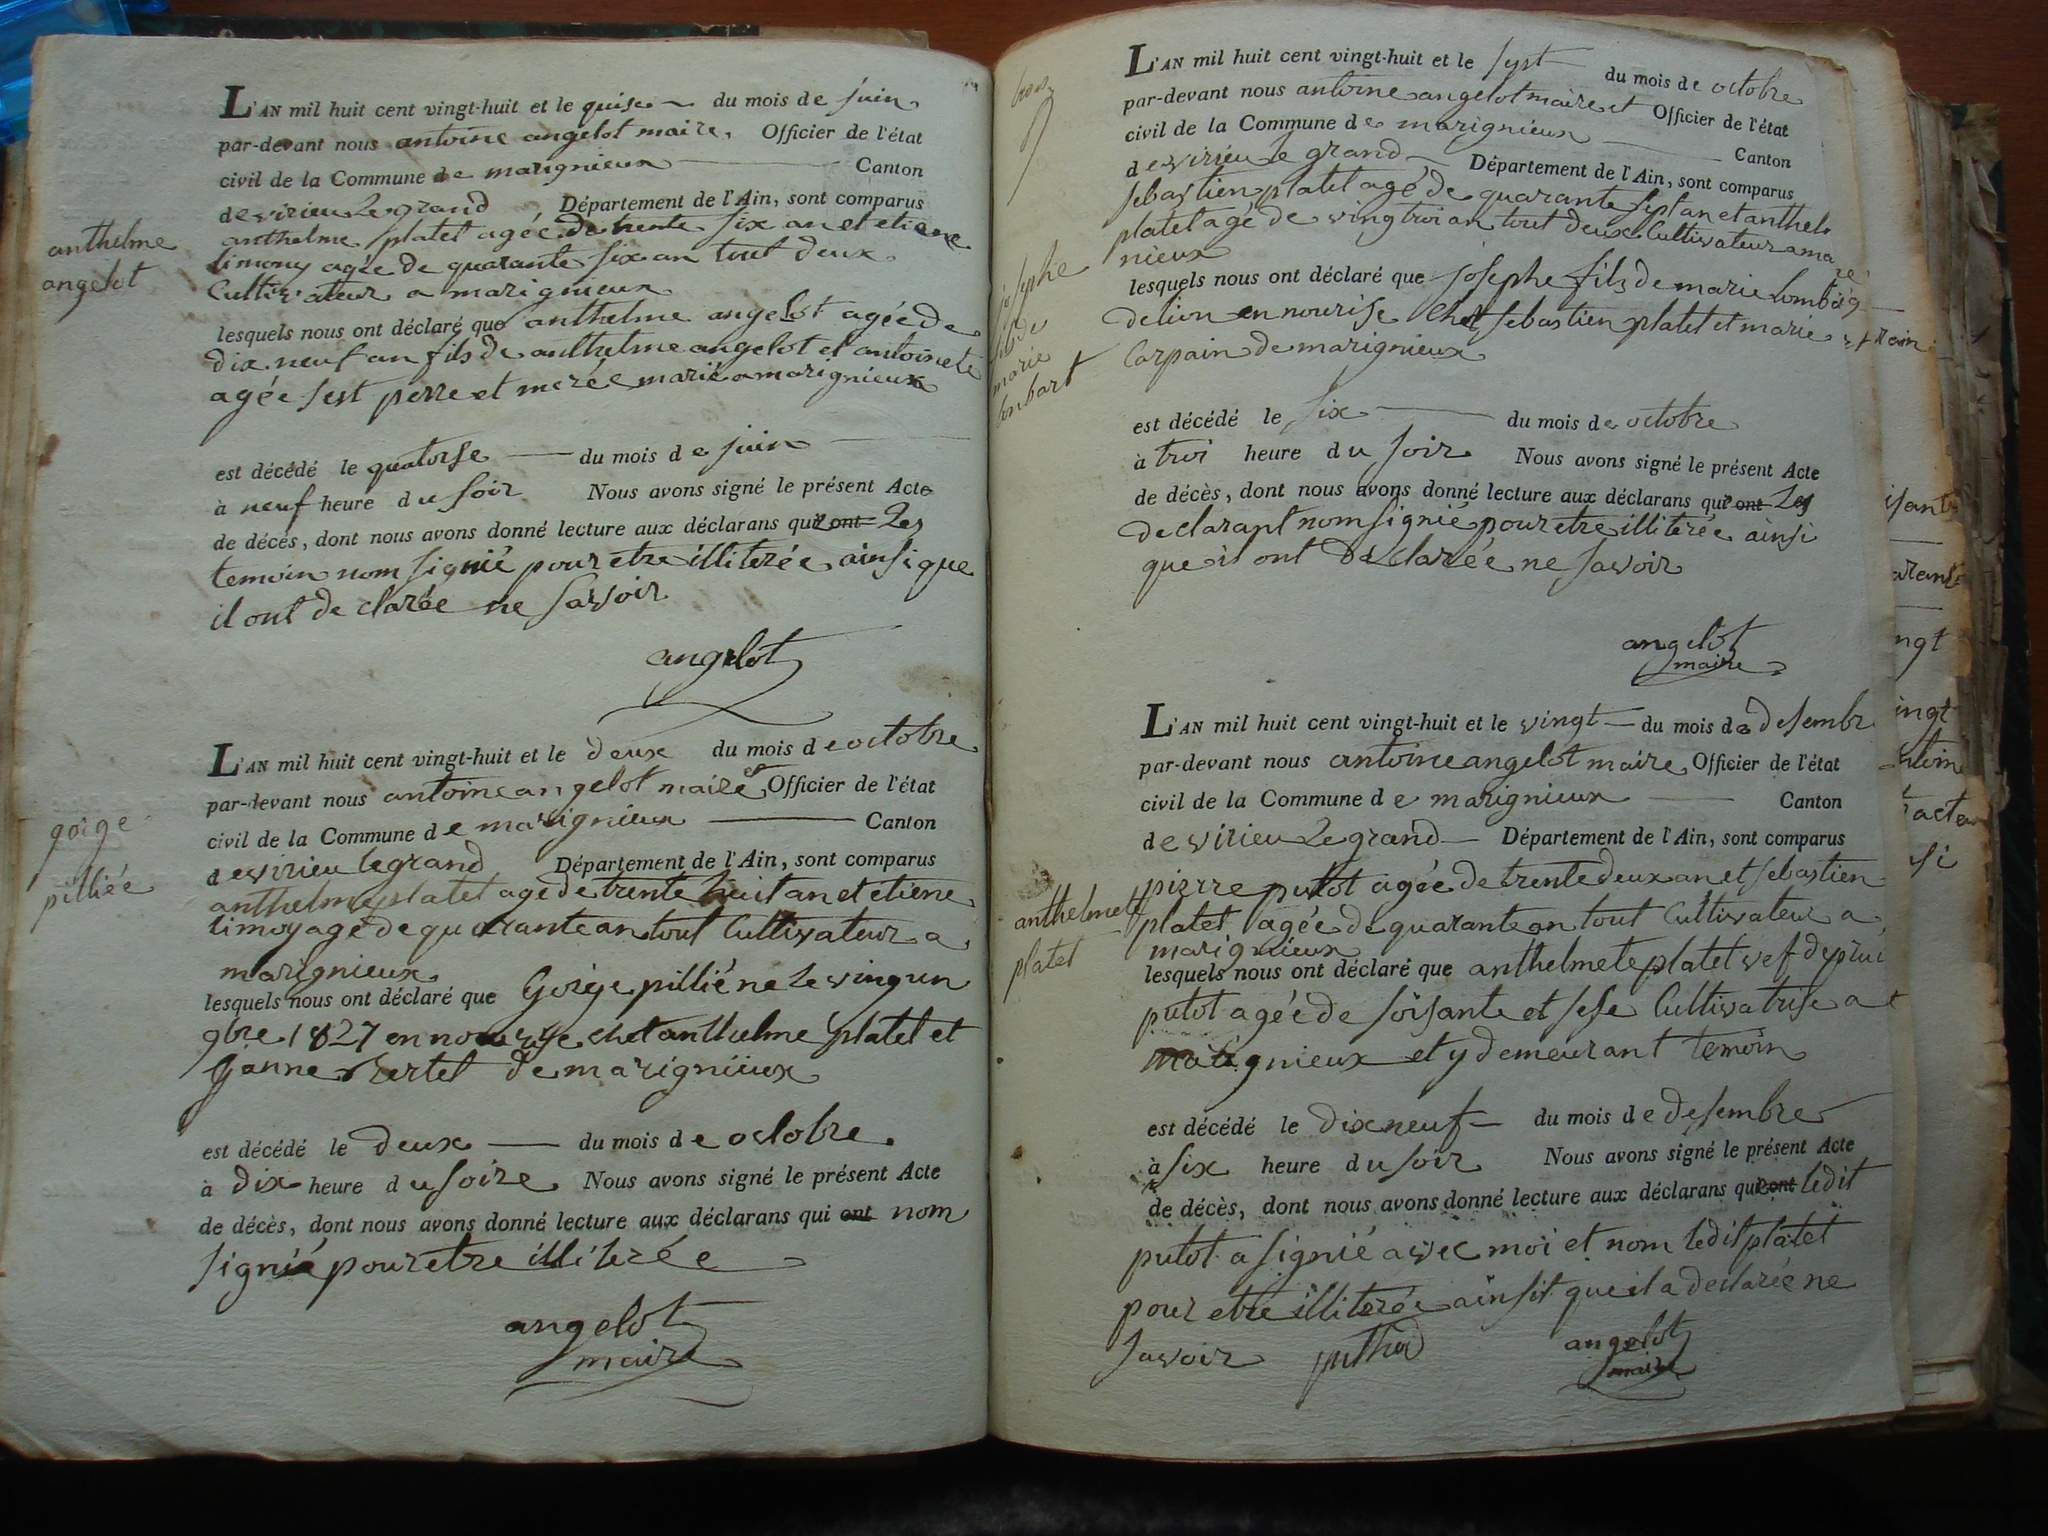 anthelme
angelot
L'AN mil huit cent vingt-huit et le quise du mois de juin
par-devant nous antoine angelot maire, Officier de l'état
civil de la Commune de marignieux Canton
de virieu Le grand Département de l'Ain, sont comparus
anthelme platet agée de trente six an et etiene
timony agée de quarante six an tout deux
Cultivateur a marignieux
lesquels nous ont déclaré que anthelme angelot agée de
dix neuf an fils de anthelme angelot et antoinete
agée sest perre et merée marie a marignieux
est décédé le quatorse du mois de juin
à neuf heure du soir Nous avons signé le présent Acte
de décès, dont nous avons donné lecture aux déclarans qui ont Les
temoin nom signié pour etre illiterée ainsi que
il ont de clarée ne savoir
angelot
gorge
pilliée
L'AN mil huit cent vingt-huit et le deux du mois de octobre
par-devant nous antoine angelot maire et Officier de l'état
civil de la Commune de marignieux Canton
de virieu le grand Département de l'Ain, sont comparus
anthelme platet age de trente huit an et etiene
timoy age de quarante an tout Cultivateur a
marignieux
lesquels nous ont déclaré que Gorge pillié ne le vingun
9bre 1827 en nourise chet anthelme platet et
Ganne Bertet de marigniieux
est décédé le deux du mois de octobre
à dix heure du soire Nous avons signé le présent Acte
de décès, dont nous avons donné lecture aux déclarans qui ont nom
signié pour etre illiterée
angelot
maire
josephe
fils de
marie
lonbart
L'AN mil huit cent vingt-huit et le sept du mois de octobre
par-devant nous antoine angelot maire et Officier de l'état
civil de la Commune de marignieux Canton
de virieu le grand Département de l'Ain, sont comparus
sebastien platet agé de quarante sept an et anthel
platet age de vingtroi an tout deux Cultivateur a mare
nieux
lesquels nous ont déclaré que josephe fils de marie Lombar
de lion en nourise Chet sebastien platet et marie
Carpain de marignieux
est décédé le six du mois de octobre
à troi heure du soir Nous avons signé le présent Acte
de décès, dont nous avons donné lecture aux déclarans qui ont Les
declarant nom signié pour etre illiterée ainsi
que il ont De clarée ne savoir
angelot
maire
anthelmete
platet
L'AN mil huit cent vingt-huit et le vingt du mois de desembr
par-devant nous antoine angelot maire Officier de l'état
civil de la Commune de marignieux Canton
de virieu Le grand Département de l'Ain, sont comparus
pierre putot agée de trente deux an et sebastien
platet agée de quarante an tout Cultivateur a
marignieux
lesquels nous ont déclaré que anthelmete platet vef de
putot agée de soisante et sese Cultivatrise a
marignieux et y demeurant temoin
est décédé le dix neuf du mois de desembre
à six heure du soir Nous avons signé le présent Acte
de décès, dont nous avons donné lecture aux déclarans qui ont ledit
putot a signié avec moi et nom ledit platet
pour etre illiterée ainsit que il a declarée ne
savoir puthod angelot
maire